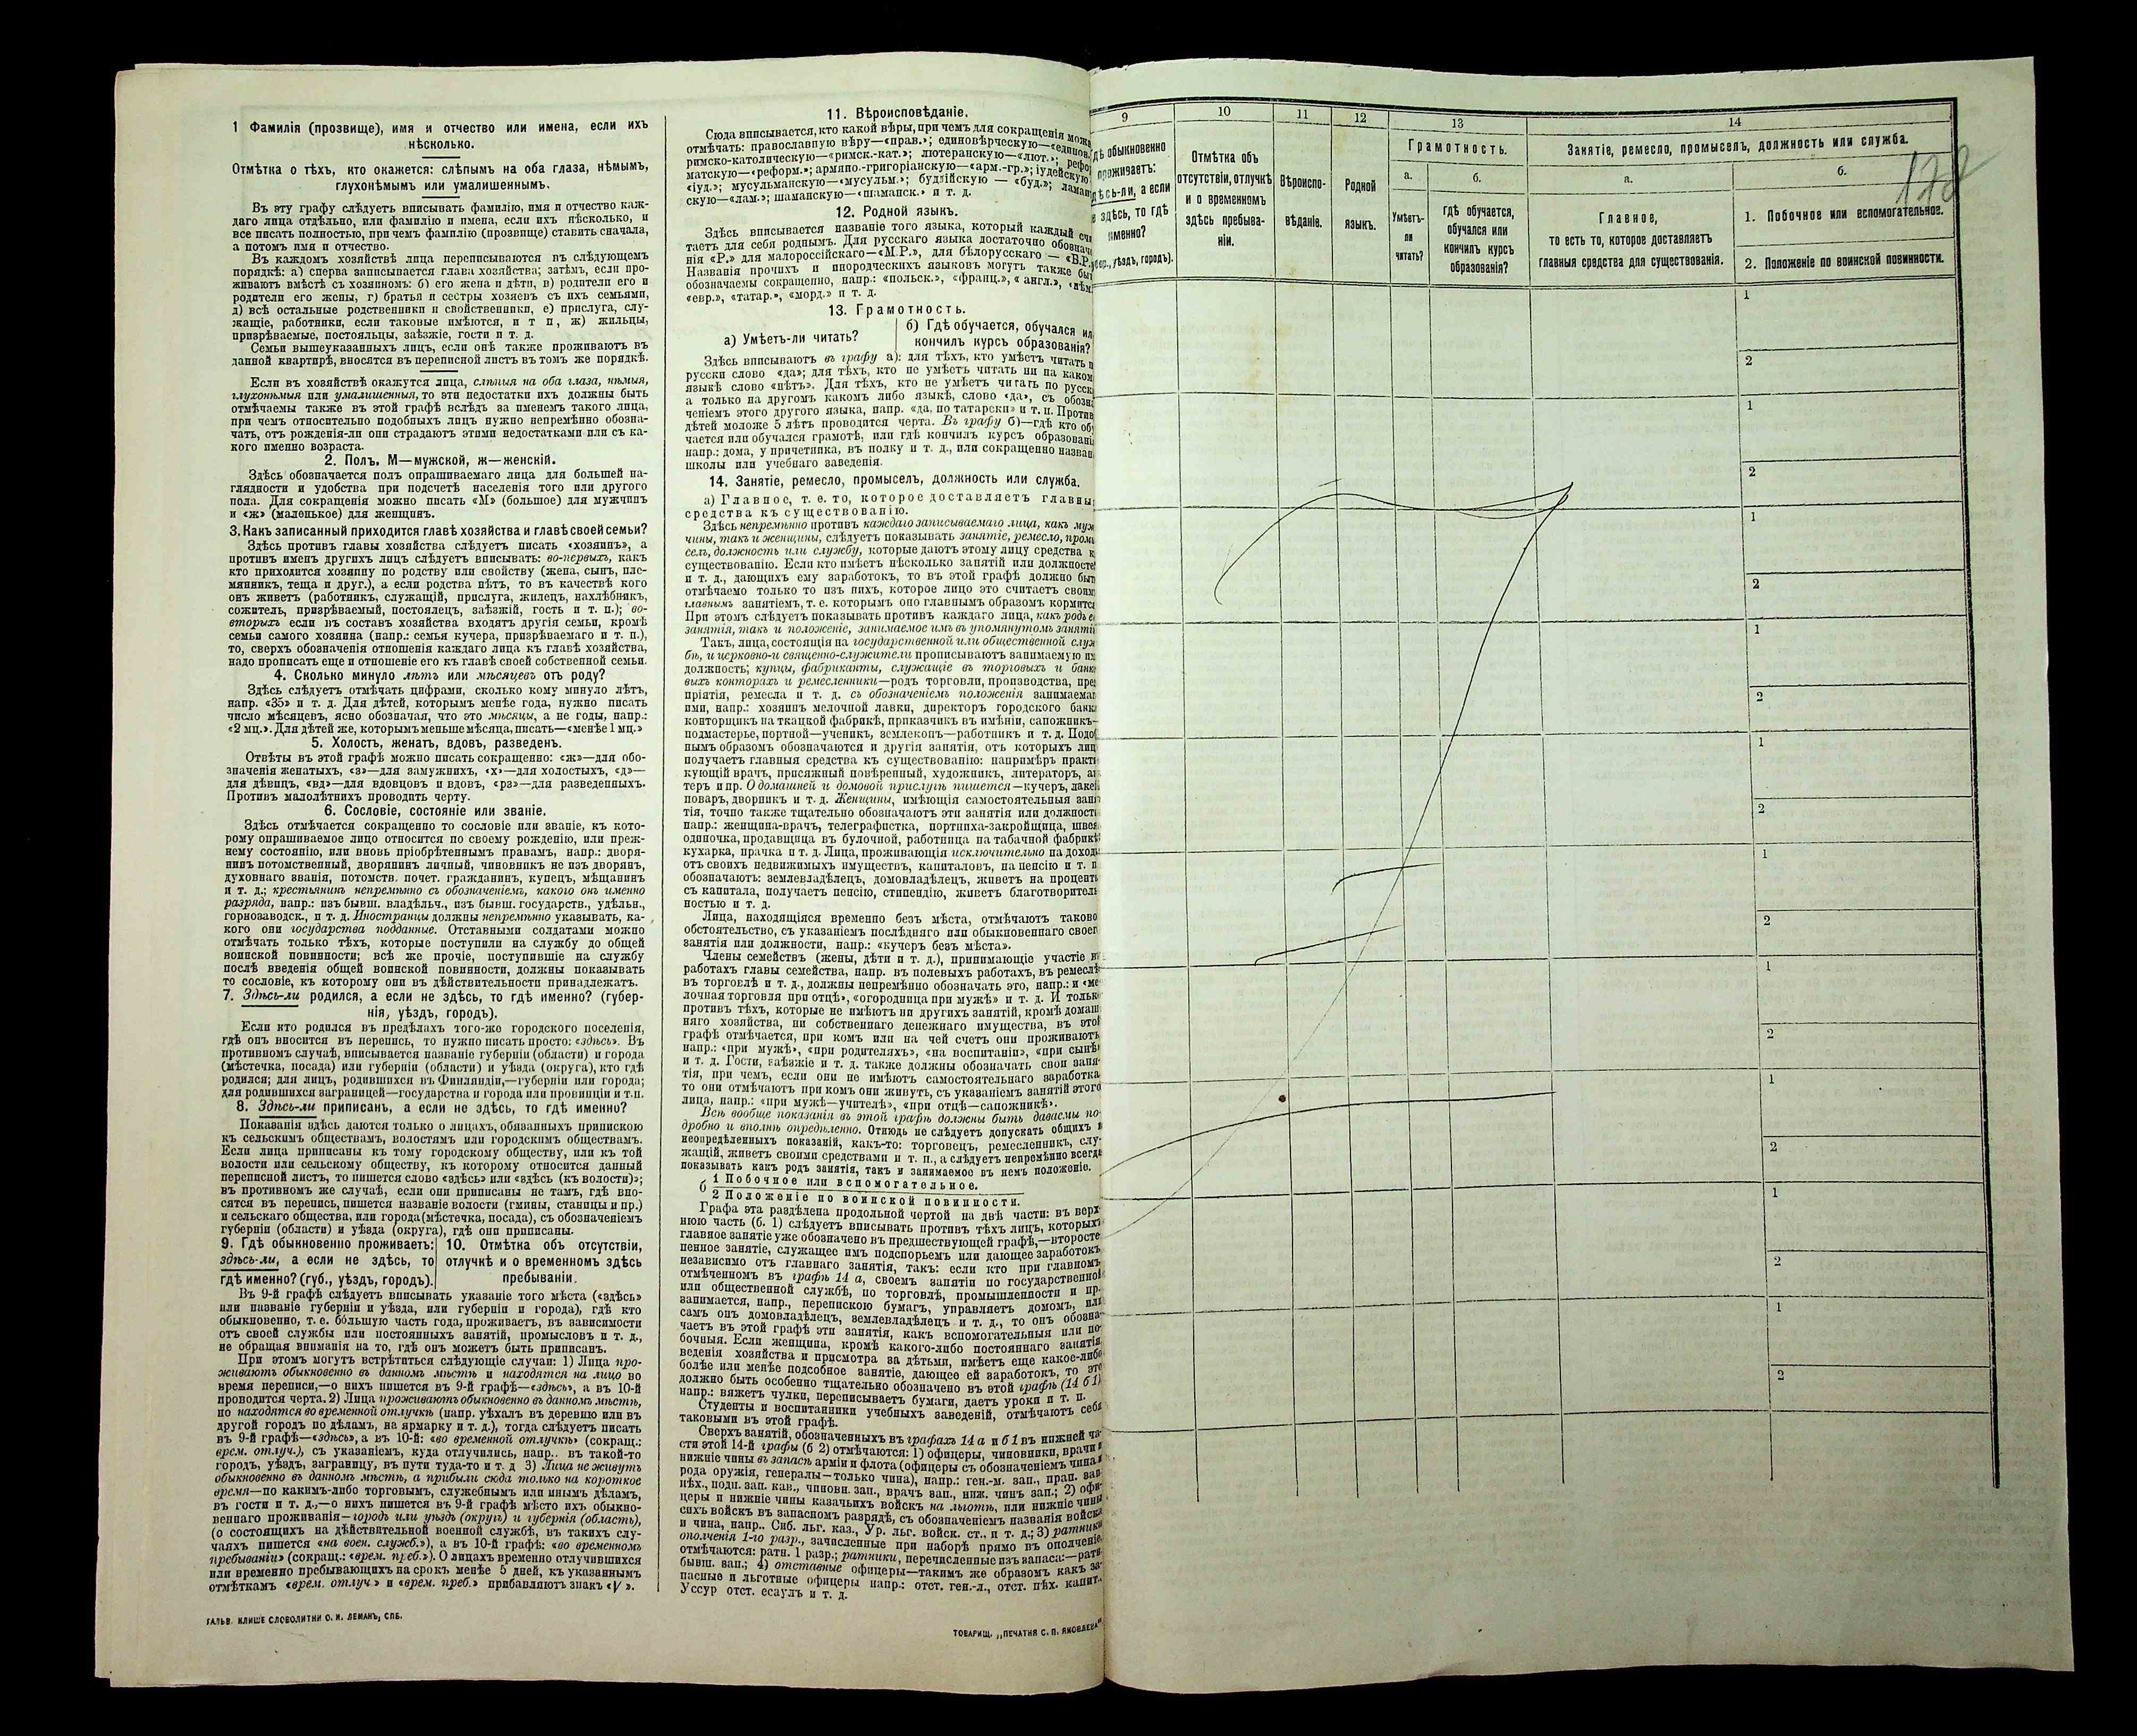 1 Фамилія (прозвище), имя и отчество или имена, если ихъ
нѣсколько.
Отмѣтка о тѣхъ, кто окажется: слѣпымъ на оба глаза, нѣмымъ,
глухонѣмымъ или умалишеннымъ.
Въ эту графу слѣдуетъ вписывать фамилію, имя и отчество каж-
даго лица отдѣльно, или фамилію и имена, если ихъ нѣсколько, и
все писать полностью, при чемъ фамилію (прозвище) ставить сначала,
а потомъ имя и отчество.
Въ каждомъ хозяйствѣ лица переписываются въ слѣдующемъ
порядкѣ: а) сперва записывается глава хозяйства; затѣмъ, если про-
живаютъ вмѣстѣ съ хозяиномъ: б) его жена и дѣти, в) родители его и
родители его жены, г) братья и сестры хозяевъ съ ихъ семьями,
д) всѣ остальные родственники и свойственники, е) прислуга, слу-
жащіе, работники, если таковые имѣются, и т п, ж) жильцы,
призрѣваемые, постояльцы, заѣзжіе, гости и т. д.
Семьи вышеуказанныхъ лицъ, если онѣ также проживаютъ въ
данной квартирѣ, вносятся въ переписной листъ въ томъ же порядкѣ.
Если въ хозяйствѣ окажутся лица, слѣпыя на оба глаза, нѣмыя,
глухонѣмыя или умалишенныя, то эти недостатки ихъ должны быть
отмѣчаемы также въ этой графѣ вслѣдъ за именемъ такого лица,
при чемъ относительно подобныхъ лицъ нужно непремѣнно обозна-
чать, отъ рожденія-ли они страдаютъ этими недостатками или съ ка-
кого именно возраста.
2. Полъ. М—мужской, ж—женскій.
Здѣсь обозначается полъ опрашиваемаго лица для большей на-
глядности и удобства при подсчетѣ населенія того или другого
пола. Для сокращенія можно писать «М» (большое) для мужчинъ
и «ж» (маленькое) для женщинъ.
3. Какъ записанный приходится главѣ хозяйства и главѣ своей семьи?
Здѣсь противъ главы хозяйства слѣдуетъ писать «хозяинъ», а
противъ именъ другихъ лицъ слѣдуетъ вписывать: во-первыхъ, какъ
кто приходится хозяину по родству или свойству (жена, сынъ, пле-
мянникъ, теща и друг.), а если родства нѣтъ, то въ качествѣ кого
онъ живетъ (работникъ, служащій, прислуга, жилецъ, нахлѣбникъ,
сожитель, призрѣваемый, постоялецъ, заѣзжій, гость и т. п.); во-
вторыхъ если въ составъ хозяйства входятъ другія семьи, кромѣ
семьи самого хозяина (напр.: семья кучера, призрѣваемаго и т. п.),
то, сверхъ обозначенія отношенія каждаго лица къ главѣ хозяйства,
надо прописать еще и отношеніе его къ главѣ своей собственной семьи.
4. Сколько минуло лѣтъ или мѣсяцевъ отъ роду?
Здѣсь слѣдуетъ отмѣчать цифрами, сколько кому минуло лѣтъ,
напр. «35» и т. д. Для дѣтей, которымъ менѣе года, нужно писать
число мѣсяцевъ, ясно обозначая, что это мѣсяцы, а не годы, напр.:
«2 мц.». Для дѣтей же, которымъ меньше мѣсяца, писать—«менѣе 1 мц.»
5. Холостъ, женатъ, вдовъ, разведенъ.
Отвѣты въ этой графѣ можно писать сокращенно: «ж»—для обо-
значенія женатыхъ, «з»—для замужнихъ, «х»—для холостыхъ, «д»—
для дѣвицъ, «вд»—для вдовцовъ и вдовъ, «рз»—для разведенныхъ.
Противъ малолѣтнихъ проводить черту.
6. Сословіе, состояніе или званіе.
Здѣсь отмѣчается сокращенно то сословіе или званіе, къ кото-
рому опрашиваемое лицо относится по своему рожденію, или преж-
нему состоянію, или вновь пріобрѣтеннымъ правамъ, напр.: дворя-
нинъ потомственный, дворянинъ личный, чиновникъ не изъ дворянъ,
духовнаго званія, потомств. почет. гражданинъ, купецъ, мѣщанинъ
и т. д.; крестьянинъ непремѣнно съ обозначеніемъ, какого онъ именно
разряда, напр.: изъ бывш. владѣльч., изъ бывш. государств., удѣльн.,
горнозаводск., и т. д. Иностранцы должны непремѣнно указывать, ка-
кого они государства подданные. Отставными солдатами можно
отмѣчать только тѣхъ, которые поступили на службу до общей
воинской повинности; всѣ же прочіе, поступившіе на службу
послѣ введенія общей воинской повинности, должны показывать
то сословіе, къ которому они въ дѣйствительности принадлежатъ.
7. Здѣсь-ли родился, а если не здѣсь, то гдѣ именно? (губер-
нія, уѣздъ, городъ).
Если кто родился въ предѣлахъ того-же городского поселенія,
гдѣ онъ вносится въ перепись, то нужно писать просто: «здѣсь». Въ
противномъ случаѣ, вписывается названіе губерніи (области) и города
(мѣстечка, посада) или губерніи (области) и уѣзда (округа), кто гдѣ
родился; для лицъ, родившихся въ Финляндіи,—губерніи или города;
для родившихся заграницей—государства и города или провинціи и т.п.
8. Здѣсь-ли приписанъ, а если не здѣсь, то гдѣ именно?
Показанія здѣсь даются только о лицахъ, обязанныхъ припискою
къ сельскимъ обществамъ, волостямъ или городскимъ обществамъ.
Если лица приписаны къ тому городскому обществу, или къ той
волости или сельскому обществу, къ которому относится данный
переписной листъ, то пишется слово «здѣсь» или «здѣсь (къ волости)»;
въ противномъ же случаѣ, если они приписаны не тамъ, гдѣ вно-
сятся въ перепись, пишется названіе волости (гмины, станицы и пр.)
и сельскаго общества, или города (мѣстечка, посада), съ обозначеніемъ
губерніи (области) и уѣзда (округа), гдѣ они приписаны.
9. Гдѣ обыкновенно проживаетъ:
здѣсь-ли, а если не здѣсь, то
гдѣ именно? (губ., уѣздъ, городъ).
10. Отмѣтка объ отсутствіи,
отлучкѣ и о временномъ здѣсь
пребываніи.
Въ 9-й графѣ слѣдуетъ вписывать указаніе того мѣста («здѣсь»
или названіе губерніи и уѣзда, или губерніи и города), гдѣ кто
обыкновенно, т. е. бо́льшую часть года, проживаетъ, въ зависимости
отъ своей службы или постоянныхъ занятій, промысловъ и т. д.,
не обращая вниманія на то, гдѣ онъ можетъ быть приписанъ.
При этомъ могутъ встрѣтиться слѣдующіе случаи: 1) Лица про-
живаютъ обыкновенно въ данномъ мѣстѣ и находятся на лицо во
время переписи,—о нихъ пишется въ 9-й графѣ—«здѣсь», а въ 10-й
проводится черта. 2) Лица проживаютъ обыкновенно въ данномъ мѣстѣ,
но находятся во временной отлучкѣ (напр. уѣхалъ въ деревню или въ
другой городъ по дѣламъ, на ярмарку и т. д.), тогда слѣдуетъ писать
въ 9-й графѣ—«здѣсь», а въ 10-й: «во временной отлучкѣ» (сокращ.:
врем. отлуч.), съ указаніемъ, куда отлучились, напр.. въ такой-то
городъ, уѣздъ, заграницу, въ пути туда-то и т. д 3) Лица не живутъ
обыкновенно въ данномъ мѣстѣ, а прибыли сюда только на короткое
время—по какимъ-либо торговымъ, служебнымъ или инымъ дѣламъ,
въ гости и т. д.,—о нихъ пишется въ 9-й графѣ мѣсто ихъ обыкно-
веннаго проживанія—городъ или уѣздъ (округъ) и губернія (область),
(о состоящихъ на дѣйствительной военной службѣ, въ такихъ слу-
чаяхъ пишется «на воен. служб.»), а въ 10-й графѣ: «во временномъ
пребываніи» (сокращ.: «врем. преб.»). О лицахъ временно отлучившихся
или временно пребывающихъ на срокъ менѣе 5 дней, къ указаннымъ
отмѣткамъ «врем. отлуч.» и «врем. преб.» прибавляютъ знакъ «V».
ГАЛЬВ. КЛИШЕ СЛОВОЛИТНИ О. И. ЛЕМАНЪ, СПБ.
11. Вѣроисповѣданіе.
Сюда вписывается, кто какой вѣры, при чемъ для сокращенія можн
отмѣчать: православную вѣру—«прав.»; единовѣрческую—«единов.
римско-католическую—«римск.-кат.»; лютеранскую—«лют.»; рефор
матскую—«реформ.»; армяно-григоріанскую—«арм.-гр.»; іудейскую
«іуд.»; мусульманскую—«мусульм.»; буддійскую — «буд.»; ламаи
скую—«лам.»; шаманскую—«шаманск.» и т. д.
12. Родной языкъ.
Здѣсь вписывается названіе того языка, который каждый счи
таетъ для себя роднымъ. Для русскаго языка достаточно обознач
нія «Р.» для малороссійскаго—«М.Р.», для бѣлорусскаго — «Б.Р.
Названія прочихъ и инородческихъ языковъ могутъ также быт
обозначаемы сокращенно, напр.: «польск.», «франц.», « англ.», «нѣм
«евр.», «татар.», «морд.» и т. д.
13. Грамотность.
а) Умѣетъ-ли читать?
б) Гдѣ обучается, обучался ил
кончилъ курсъ образованія?
Здѣсь вписываютъ въ графу а): для тѣхъ, кто умѣетъ читать п
русски слово «да»; для тѣхъ, кто не умѣетъ читать ни на каком
языкѣ слово «нѣтъ». Для тѣхъ, кто не умѣетъ читать по русск
а только на другомъ какомъ либо языкѣ, слово «да», съ обозн
ченіемъ этого другого языка, напр. «да, по татарски» и т. п. Против
дѣтей моложе 5 лѣтъ проводится черта. Въ графу б)—гдѣ кто об
чается или обучался грамотѣ, или гдѣ кончилъ курсъ образовані
напр.: дома, у причетника, въ полку и т. д., или сокращенно назван
школы или учебнаго заведенія.
14. Занятіе, ремесло, промыселъ, должность или служба.
а) Главное, т. е. то, которое доставляетъ главны
средства къ существованію.
Здѣсь непремѣнно противъ каждаго записываемаго лица, какъ муж
чины, такъ и женщины, слѣдуетъ показывать занятіе, ремесло, промы
селъ, должность или службу, которые даютъ этому лицу средства к
существованію. Если кто имѣетъ нѣсколько занятій или должносте
и т. д., дающихъ ему заработокъ, то въ этой графѣ должно быт
отмѣчаемо только то изъ нихъ, которое лицо это считаетъ своим
главнымъ занятіемъ, т. е. которымъ оно главнымъ образомъ кормится
При этомъ слѣдуетъ показывать противъ каждаго лица, какъ родъ е
занятія, такъ и положеніе, занимаемое имъ въ упомянутомъ заняті
Такъ, лица, состоящія на государственной или общественной служ
бѣ, и церковно-и священно-служители прописываютъ занимаемую им
должность; купцы, фабриканты, служащіе въ торговыхъ и банко
выхъ конторахъ и ремесленники—родъ торговли, производства, пред
пріятія, ремесла и т. д. съ обозначеніемъ положенія занимаемаг
ими, напр.: хозяинъ мелочной лавки, директоръ городского банка
конторщикъ на ткацкой фабрикѣ, приказчикъ въ имѣніи, сапожникъ—
подмастерье, портной—ученикъ, землекопъ—работникъ и т. д. Подоб
нымъ образомъ обозначаются и другія занятія, отъ которыхъ лиц
получаетъ главныя средства къ существованію: напримѣръ практи
кующій врачъ, присяжный повѣренный, художникъ, литераторъ, ак
теръ и пр. О домашней и домовой прислугѣ пишется—кучеръ, лакей
поваръ, дворникъ и т. д. Женщины, имѣющія самостоятельныя заня
тія, точно также тщательно обозначаютъ эти занятія или должност
напр.: женщина-врачъ, телеграфистка, портниха-закройщица, швея
одиночка, продавщица въ булочной, работница на табачной фабрикѣ
кухарка, прачка и т. д. Лица, проживающія исключительно на доход
отъ своихъ недвижимыхъ имуществъ, капиталовъ, на пенсію и т. п
обозначаютъ: землевладѣлецъ, домовладѣлецъ, живетъ на процент
съ капитала, получаетъ пенсію, стипендію, живетъ благотворитель
ностью и т. д.
Лица, находящіяся временно безъ мѣста, отмѣчаютъ таково
обстоятельство, съ указаніемъ послѣдняго или обыкновеннаго своег
занятія или должности, напр.: «кучеръ безъ мѣста».
Члены семействъ (жены, дѣти и т. д.), принимающіе участіе в
работахъ главы семейства, напр. въ полевыхъ работахъ, въ ремеслѣ
въ торговлѣ и т. д., должны непремѣнно обозначать это, напр.: и «ме
лочная торговля при отцѣ», «огородница при мужѣ» и т. д. И только
противъ тѣхъ, которые не имѣютъ ни другихъ занятій, кромѣ домаш
няго хозяйства, ни собственнаго денежнаго имущества, въ этой
графѣ отмѣчается, при комъ или на чей счетъ они проживаютъ
напр.: «при мужѣ», «при родителяхъ», «на воспитаніи», «при сынѣ»
и т. д. Гости, заѣзжіе и т. д. также должны обозначать свои заня-
тія, при чемъ, если они не имѣютъ самостоятельнаго заработка
то они отмѣчаютъ при комъ они живутъ, съ указаніемъ занятій этого
лица, напр.: «при мужѣ—учителѣ», «при отцѣ—сапожникѣ».
Всѣ вообще показанія въ этой графѣ должны быть даваемы по-
дробно и вполнѣ опредѣленно. Отнюдь не слѣдуетъ допускать общихъ и
неопредѣленныхъ показаній, какъ-то: торговецъ, ремесленникъ, слу-
жащій, живетъ своими средствами и т. п., а слѣдуетъ непремѣнно всегда
показывать какъ родъ занятія, такъ и занимаемое въ немъ положеніе.
б 1 Побочное или вспомогательное.
2 Положеніе по воинской повинности.
Графа эта раздѣлена продольной чертой на двѣ части: въ верх
нюю часть (б. 1) слѣдуетъ вписывать противъ тѣхъ лицъ, которыхъ
главное занятіе уже обозначено въ предшествующей графѣ,—второсте
пенное занятіе, служащее имъ подспорьемъ или дающее заработокъ
независимо отъ главнаго занятія, такъ: если кто при главномъ
отмѣченномъ въ графѣ 14 а, своемъ занятіи по государственной
или общественной службѣ, по торговлѣ, промышленности и пр.
занимается, напр., перепискою бумагъ, управляетъ домомъ, или
самъ онъ домовладѣлецъ, землевладѣлецъ и т. д., то онъ обозна-
чаетъ въ этой графѣ эти занятія, какъ вспомогательныя или по-
бочныя. Если женщина, кромѣ какого-либо постояннаго занятія
веденія хозяйства и присмотра за дѣтьми, имѣетъ еще какое-либо
болѣе или менѣе подсобное занятіе, дающее ей заработокъ, то это
должно быть особенно тщательно обозначено въ этой графѣ (14 б 1)
напр.: вяжетъ чулки, переписываетъ бумаги, даетъ уроки и т. п.
Студенты и воспитанники учебныхъ заведеній, отмѣчаютъ себя
таковыми въ этой графѣ.
Сверхъ занятій, обозначенныхъ въ графахъ 14 а и б 1 въ нижней ча-
сти этой 14-й графы (б 2) отмѣчаются: 1) офицеры, чиновники, врачи и
нижніе чины въ запасѣ арміи и флота (офицеры съ обозначеніемъ чина и
рода оружія, генералы—только чина), напр.: ген.-м. зап., прап. зап
пѣх., подп. зап. кав., чиновн. зап., врачъ зап., ниж. чинъ зап.; 2) офи-
церы и нижніе чины казачьихъ войскъ на льготѣ, или нижніе чины
сихъ войскъ въ запасномъ разрядѣ, съ обозначеніемъ названія войска
и чина, напр.. Сиб. льг. каз., Ур. льг. войск. ст., и т. д.; 3) ратники
ополченія 1-го разр., зачисленные при наборѣ прямо въ ополченіе,
отмѣчаются: ратн. 1 разр.; ратники, перечисленные изъ запаса:—ратн.
бывш. зап.; 4) отставные офицеры—такимъ же образомъ какъ за-
пасные и льготные офицеры напр.: отст. ген.-л., отст. пѣх. капит.,
Уссур отст. есаулъ и т. д.
ТОВАРИЩ. „ПЕЧАТНЯ С. П. ЯКОВЛЕВА"
9
дѣ обыкновенно
проживаетъ:
дѣсь-ли, а если
е здѣсь, то гдѣ
именно?
убер., уѣздъ, городъ).
10
Отмѣтка объ
отсутствіи, отлучкѣ
и о временномъ
здѣсь пребыва-
ніи.
11
Вѣроиспо-
вѣданіе.
12
Родной
языкъ.
13
Грамотность.
а.
Умѣетъ-
ли
читать?
б.
Гдѣ обучается,
обучался или
кончилъ курсъ
образованія?
14
Занятіе, ремесло, промыселъ, должность или служба.
а.
Главное,
то есть то, которое доставляетъ
главныя средства для существованія.
б.
1. Побочное или вспомогательное.
2. Положеніе по воинской повинности.
1
2
1
2
1
2
1
2
1
2
1
2
1
2
1
2
1
2
1
2